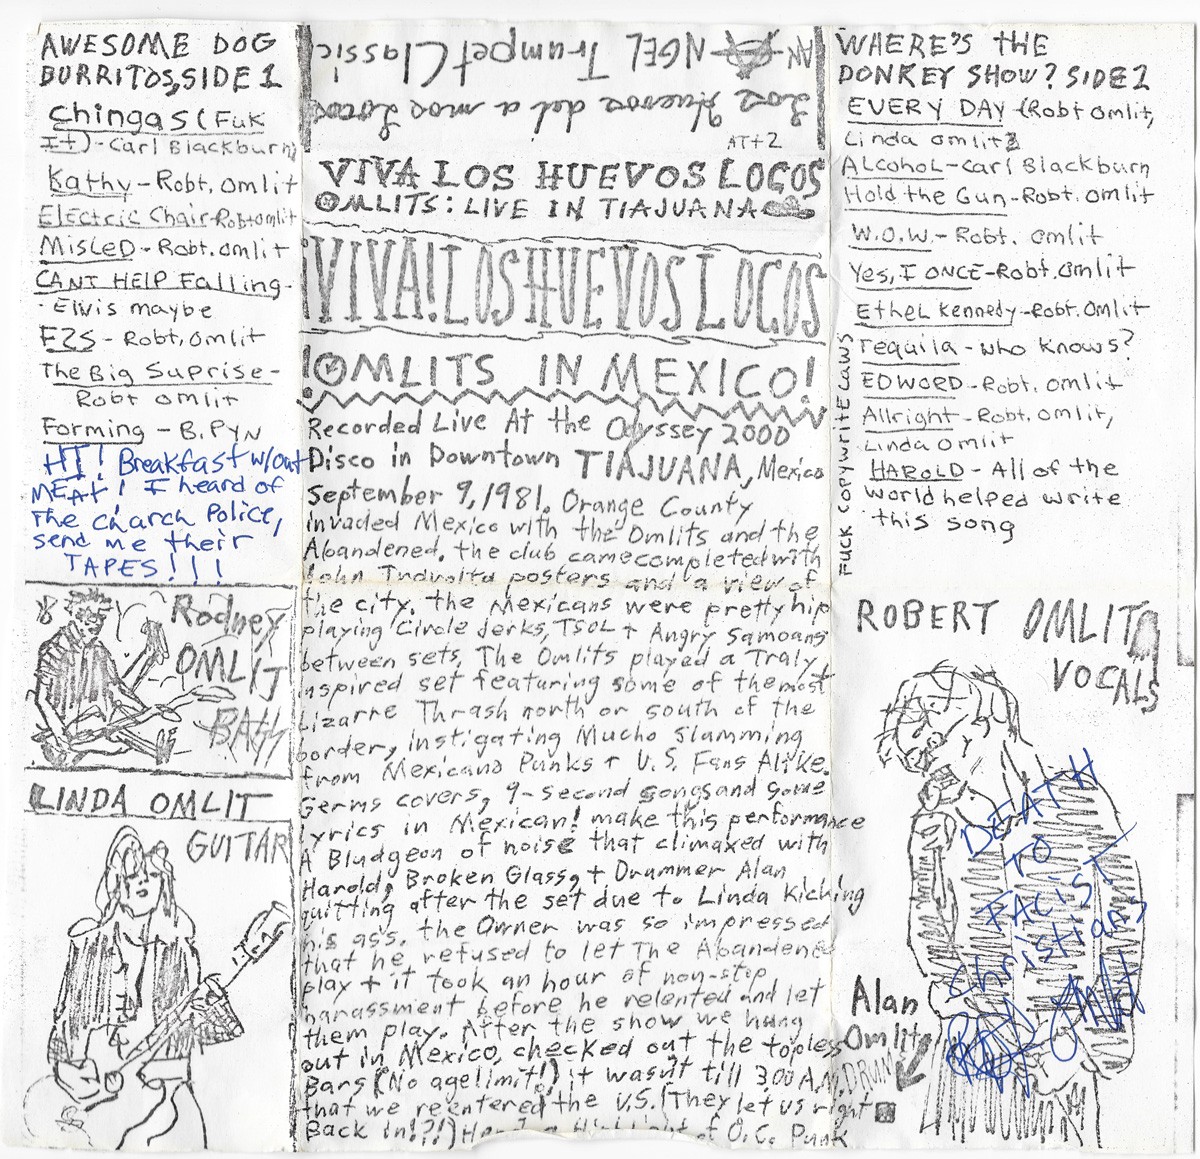 AWESOME DOG
BURRITOS, SIDE 1
Chingas (Fuk
It) - Carl Blackburn
Kathy - Robt. Omlit
Electric Chair - Robt omlit
MisLeD - Robt. omlit
CANT HELP Falling -
Elvis maybe
EZS - Robt, Omlit
The Big Suprise -
Robt omlit
Forming - B. PYN
HI! Breakfast w/out
MEAt! I heard of
The Charch Police,
send me their
TAPES!!!
Rodney
OMLIT
BASS
LINDA OMLIT
GUITAR
AN ANGEL Trumpet Classic
Los Huevos del a mos Locos
ATt2
VIVA LOS HUEVOS LOCOS
OMLITS: LIVE IN TIAJUANA
¡VIVA! LOS HUEVOS LOCOS
!OMLITS IN MEXICO!
Recorded Live At the Odyssey 2000
Disco in Downtown TIAJUANA, Mexico
September 9, 1981. Orange County
invaded Mexico with the Omlits and the
Abandened. the club came completed with
John Travolta posters and a view of
the city. the Mexicans were pretty hip
playing Circle Jerks, TSOL + Angry Samoans
between sets. The Omlits played a Traly
inspired set featuring some of the most
bizarre Thrash north or south of the
border, instigating Mucho Slamming
from Mexicano Punks + U.S. Fans Alike.
Germs covers, 9-second songs and some
lyrics in Mexican! make this performance
A Bludgeon of noise that climaxed with
Harold, Broken Glass, + Drummer Alan
quitting after the set due to Linda Kicking
his ass. the Owner was so impressed
that he refused to let The Abandened
play + it took an hour of non-stop
harassment before he relented and let
them play. After the show we hung
out in Mexico, checked out the topless
Bars (No age limit!) it wasn't till 3:00 A.M.
that we reentered the U.S. (They let us right
Back in!?!) Here's a Highlight of O.C. Punk
WHERE'S THE
DONKEY SHOW? SIDE 2
EVERY DAY (Robt Omlit,
Linda omlit)
Alcohol - Carl Blackburn
Hold the Gun - Robt. Omlit
W.O.W. - Robt. Omlit
Yes, I ONCE - Robt. Omlit
Ethel Kennedy - Robt. Omlit
Tequila - who knows?
EDWORD - Robt. Omlit
Allright - Robt. Omlit,
Linda Omlit
HAROLD - All of the
world helped write
this song
FUCK COPYWRITE LAWS
ROBERT OMLIT
VOCALS
DEATH
TO
FACIST
Christians
Omlit
Alan
Omlit
DRUM